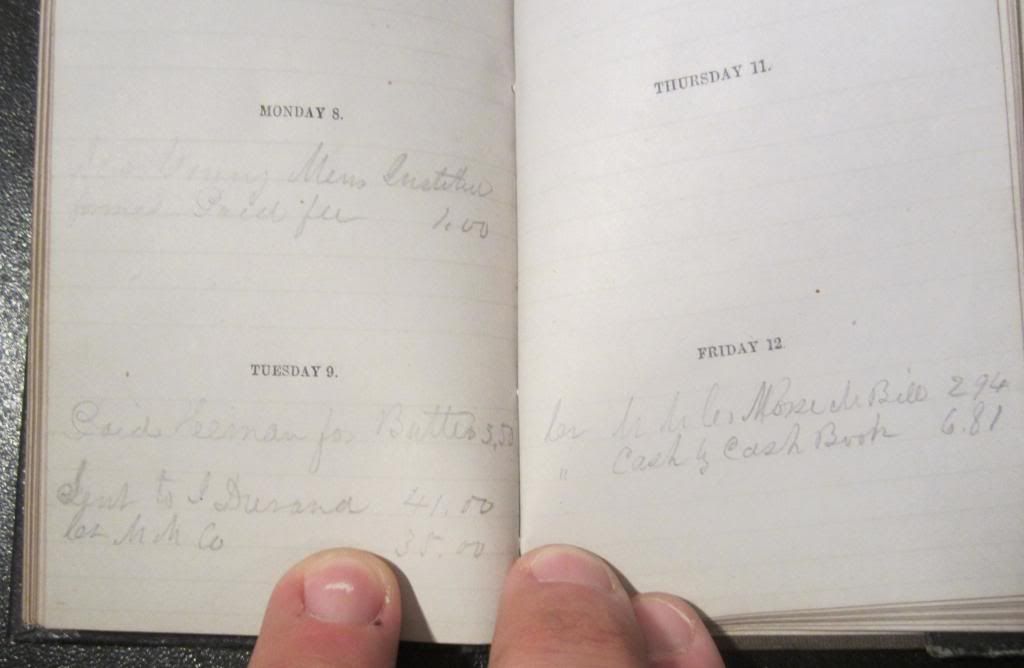 MONDAY 8.
Young Mens Institue
Paid fee 1.00
TUESDAY 9.
Paid for Butter 3,50
Sent to I Durand 41.00
Cr M M Co 35.00
THURSDAY 11.
FRIDAY 12.
Cr M M Co Morse M Bill 2 94
" Cash Cash Book 6.81